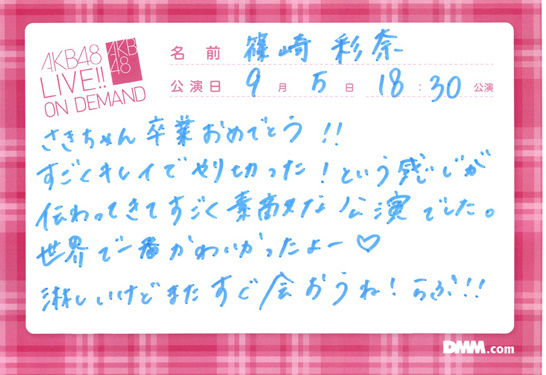 AKB48
LIVE!!
ON DEMAND
AKB
48
名前 篠崎 彩奈
公演日 9月5日 18:30公演
さきちゃん卒業おめでとう!!
すごくキレイでやり切った!という感じが
伝わってきてすごく素敵な公演でした。
世界で一番かわいかったよー♡
淋しいけどまたすぐ会おうね!らぶ!!
DMM.com